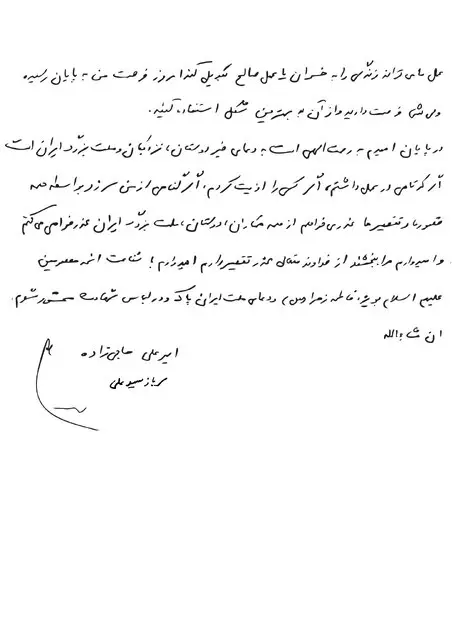 عمل ما می تواند زندگی را به خسران یا عمل صالح تبدیل کند امروز فرصت من به پایان رسیده
ولی شما فرصت دارید و از آن به بهترین شکل استفاده کنید.
در پایان امیدم به رحمت الهی است به دعای خیر دوستان، نزدیکان و ملت بزرگ ایران است
اگر کوتاهی در عمل داشتم، اگر کسی را اذیت کردم، اگر گناهی از من سر زد بواسطه همه
قصورها و تقصیرها عذر می خواهم از همه همکاران، دوستان، ملت بزرگ ایران عذرخواهی می کنم
و امیدوارم مرا ببخشند از خداوند متعال عذر تقصیر دارم امیدوارم با شفاعت ائمه معصومین
علیهم السلام بویژه فاطمه زهرا (س) و دعای ملت ایران پاک و در لباس شهادت محشور شوم.
ان شاءالله
امیرعلی حاجی زاده
سرباز سید علی